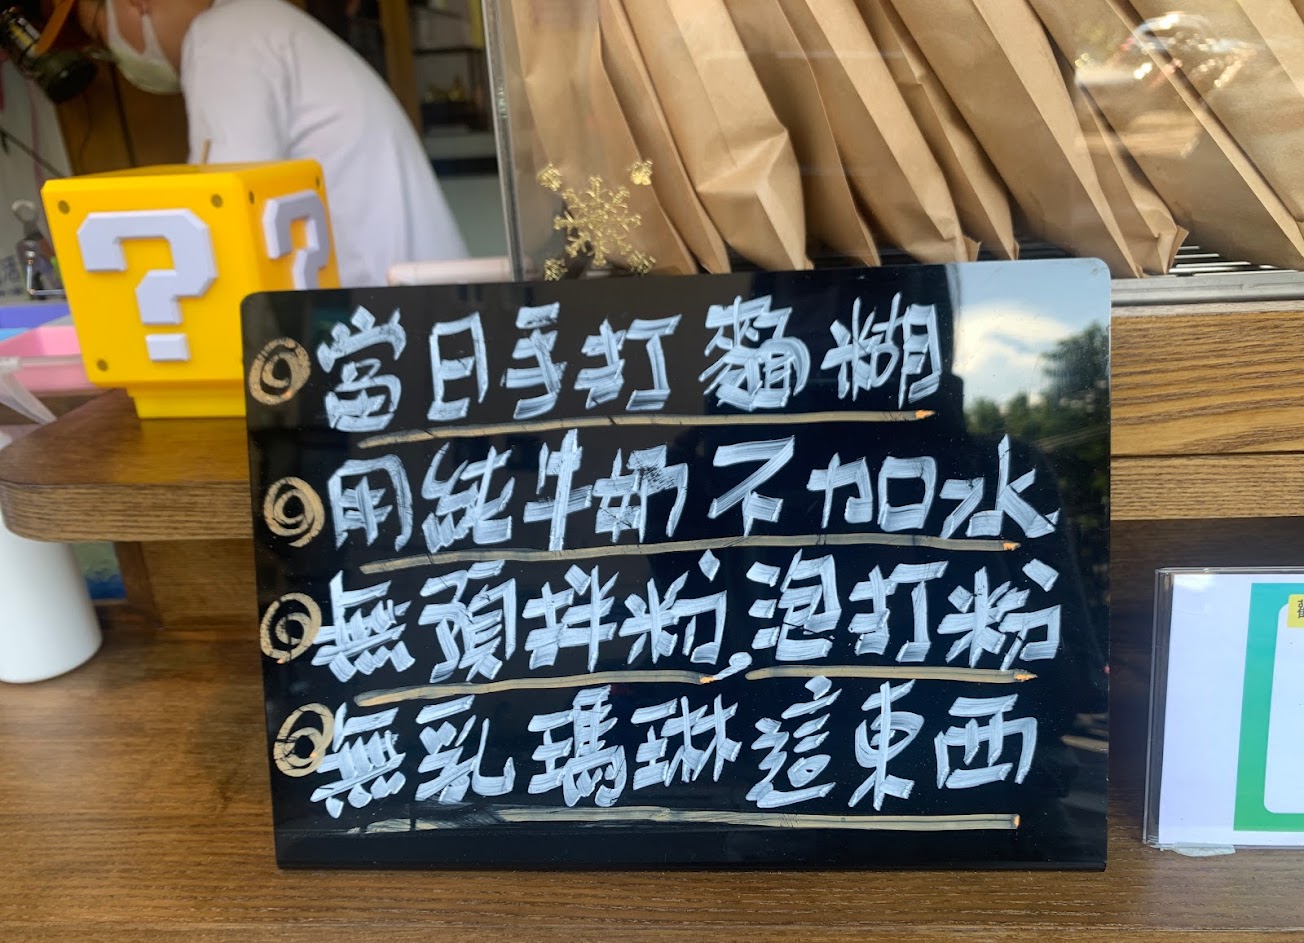 當日手打麵糊
用純牛奶不加水
無預拌粉,泡打粉
無乳瑪琳這東西
? ?